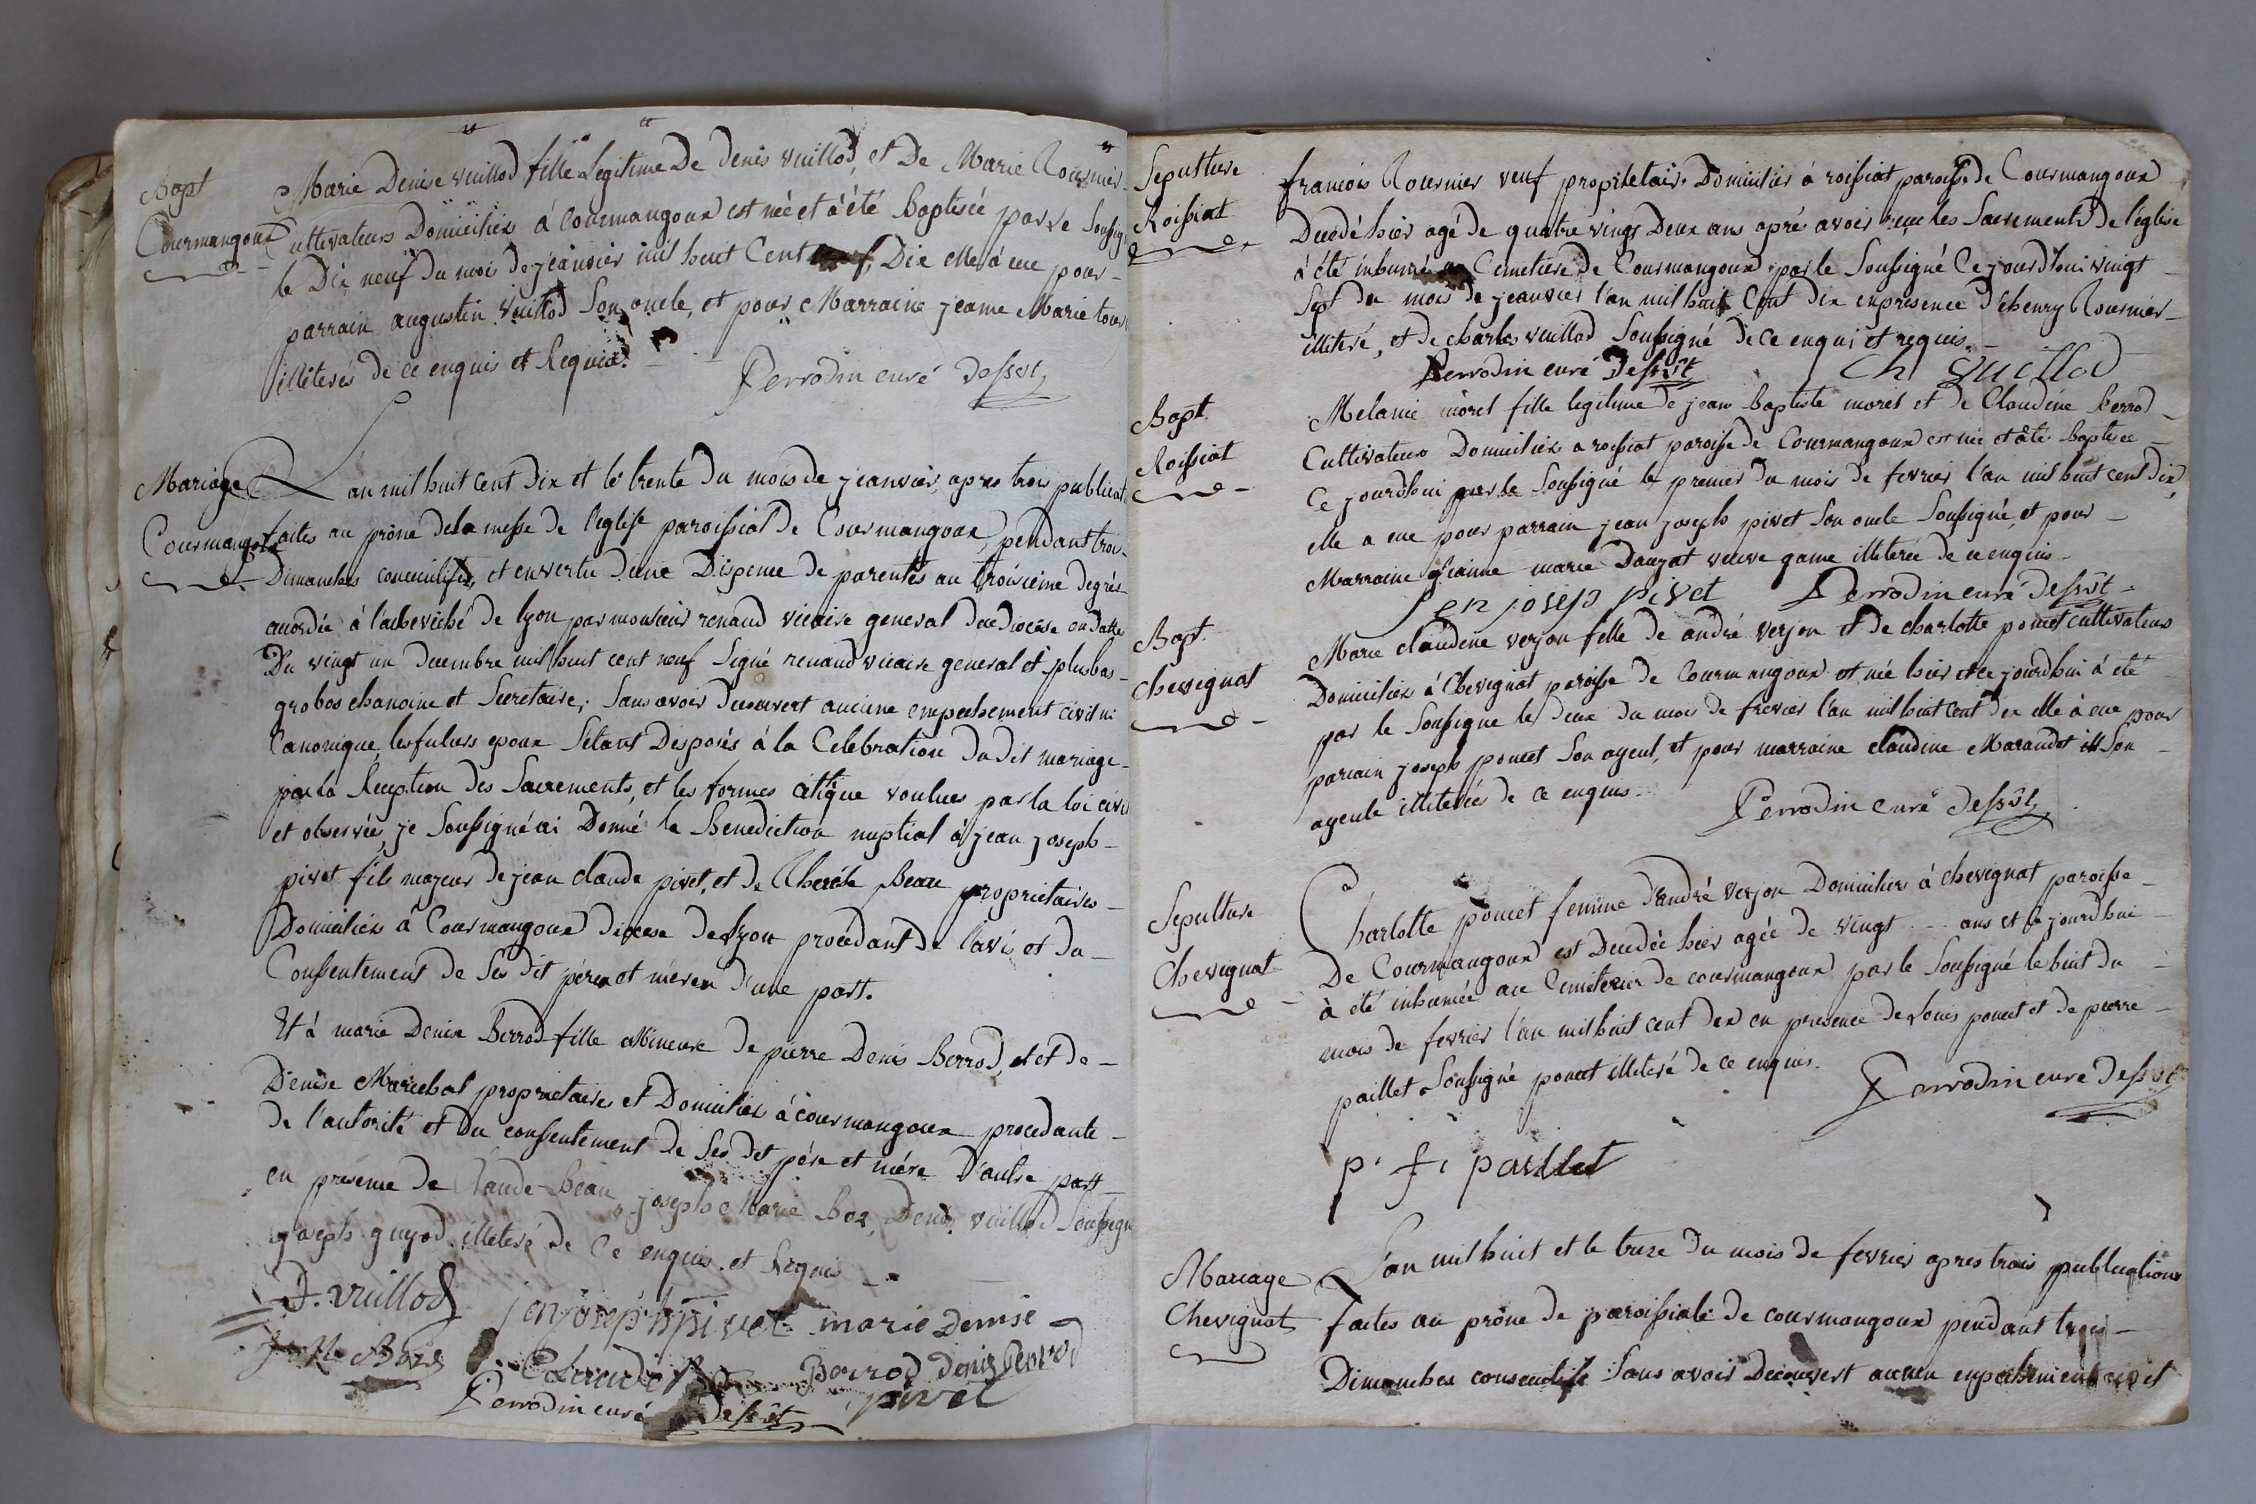 Bapt
Courmangoux
Marie Denise vuillod fille Legitime De denis vuillod, et De Marie Rournier
Cultivateurs Domiciliés à Courmangoux est née et à été baptisée par le Soussig
le Dix neuf du mois de jeanvier mil huit Cent Dix elle à eue pour
parrain augustin vuillod Son oncle, et pour Marraine jeanne Marie
illiterés de ce enquis et Requis.
Perrodin curé dessvt
Mariage
Courmangoux
L'an mil huit cent dix et le trente du mois de jeanvier, apres trois publicat
faites au prône dela messe de l'eglise paroissial de Courmangoux, pendant trois
Dimanches consecutifs, et envertu d'une Dispence de parentés au troisieme degrés
accordée à l'archeviché de lyon par monsieur renaud vicaire general du diocèse en datte
Du vingt un decembre mil huit cent neuf Signé renaud vicaire general et plus bas
grobos chanoine et Secretaire, Sans avoir decouvert aucune empechement civil ni
Canonique, les futurs epoux S'étant Desposés à la Celebration du dit mariage
par la Reception des Sacrements, et les formes voulues par la loi civil
et observées, je Soussigné ai Donné la Benediction nuptial à jean joseph
pivet fils majeur de jean claude pivet, et de Therése Beau proprietaires
Domiciliés à Courmangoux diocese de Lyon procedant de l'avis et du
Consentement de Ses dit pére et mére d'une part.
Et à marie Denise Berrod fille Mineure de pierre Denis Berrod, et et de
Denise Marechal proprietaires et Domiciliés à courmangoux procedante
de l'autorité et du consentement de Ses dit pére et mére D'autre part
en presence de Claude Beau, joseph Marie Boz, Denis vuillod Soussigné
joseph guyod illiteré de Ce enquis et Requis
D. vuillod jenjoseph pivet marie Denise
Claude Berrod denis Berrod
Perrodin curé dessvt pivet
Sepulture
Roissiat
francois Rournier veuf proprietaire Domicilié à roissiat paroisse de Courmangoux
Decedé hier agé de quatre vingt Deux ans aprés avoir recu les Sacrements de l'eglise
à été inhumé au Cemetiere de Courmangoux par le Soussigné Ce jourd'hui vingt
Sept du mois de jeanvier l'an mil huit Cent dix enpresence d'henry Rournier
illiteré, et de charles vuillod Soussigné de ce enquis et requis.
Perrodin curé Dessvt Ch vuillod
Bapt
Roissiat
Melanie morel fille legitime de jean baptiste morel et de Claudine berrod
Cultivateurs Domiciliés a roissiat paroisse de Courmangoux est née et à été baptisée
Ce jourd'hui par le Soussigné le premier du mois de fevrier l'an mil huit cent dix,
elle a eue pour parrain jean joseph pivet Son oncle Soussigné, et pour
Marraine jeanne marie Dauzat veuve game illiterée de ce enquis
jen joseph pivet Perrodin curé dessvt
Bapt
Chevignat
Marie claudine verjon fille de andré verjon et de charlotte poncet cultivateurs
Domiciliés à Chevignat paroisse de Courmangoux est née hier et ce jourd'hui à été
par le Soussigne le deux du mois de frevrier l'an mil huit cent dix elle à eue pour
parrain joseph poncet Son ayeul, et pour marraine claudine Marandet Son
ayeule illiterées de ce enquis.
Perrodin curé dessvt
Sepulture
Chevignat
Charlotte poncet femme d'andré verjon Domiciliés à chevignat paroisse
De Courmangoux est Decedée hier agée de vingt ... ans et ce jourd'hui
à été inhumée au Cemeterier de courmangoux par le Soussigné le huit du
mois de fevrier l'an mil huit cent dix en presence de Louis poncet et de pierre
paillet Soussigné poncet illiteré de ce enquis.
Perrodin curé dessvt
p. f. paillet
Mariage
Chevignat
L'an mil huit et le treze du mois de fevrier apres trois publications
faites au prône de paroissiale de courmangoux pendant trois
Dimanches consecutifs Sans avoir decouvert aucun enpechement civil